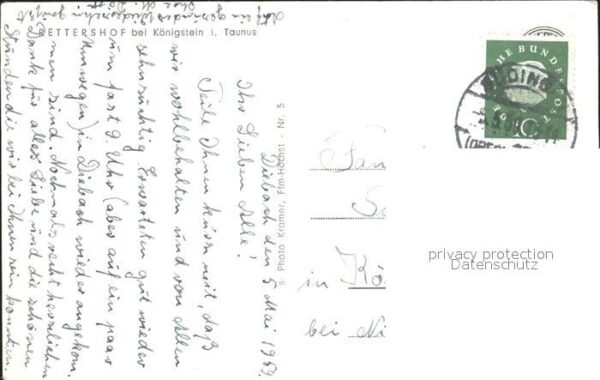 RETTERSHOF bei Königstein i. Taunus
Diebach den 5 Mai 1959
Ihr Lieben Alle!
Teile Ihnen kurz mit, daß
wir wohlbehalten und von Allen
sehnsüchtig Erwarteten gut wieder
um fast 9. Uhr (aber auf ein paar
Umwegen) in Diebach wieder angekom
men sind. Nochmals recht herzlichen
Dank für alles Liebe und die schönen
Stunden die wir bei Ihnen sein konnten.
Auf ein gesundes Wiedersehn
Photo Kramer, Ffm-Höchst - Nr. 5
DEUTSCHE BUNDESPOST
10
BÜDINGEN
Fam
in Kö
bei Ni
privacy protection
Datenschutz